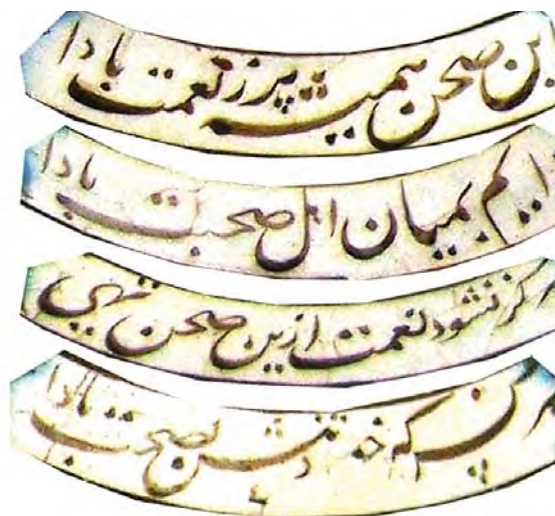 این صحن همیشه پر ز نعمت بادا
دایم بمیان اهل صحبت بادا
هرگز نشود نعمت ازین صحن تهی
هر کس که خورد تنش بصحت بادا